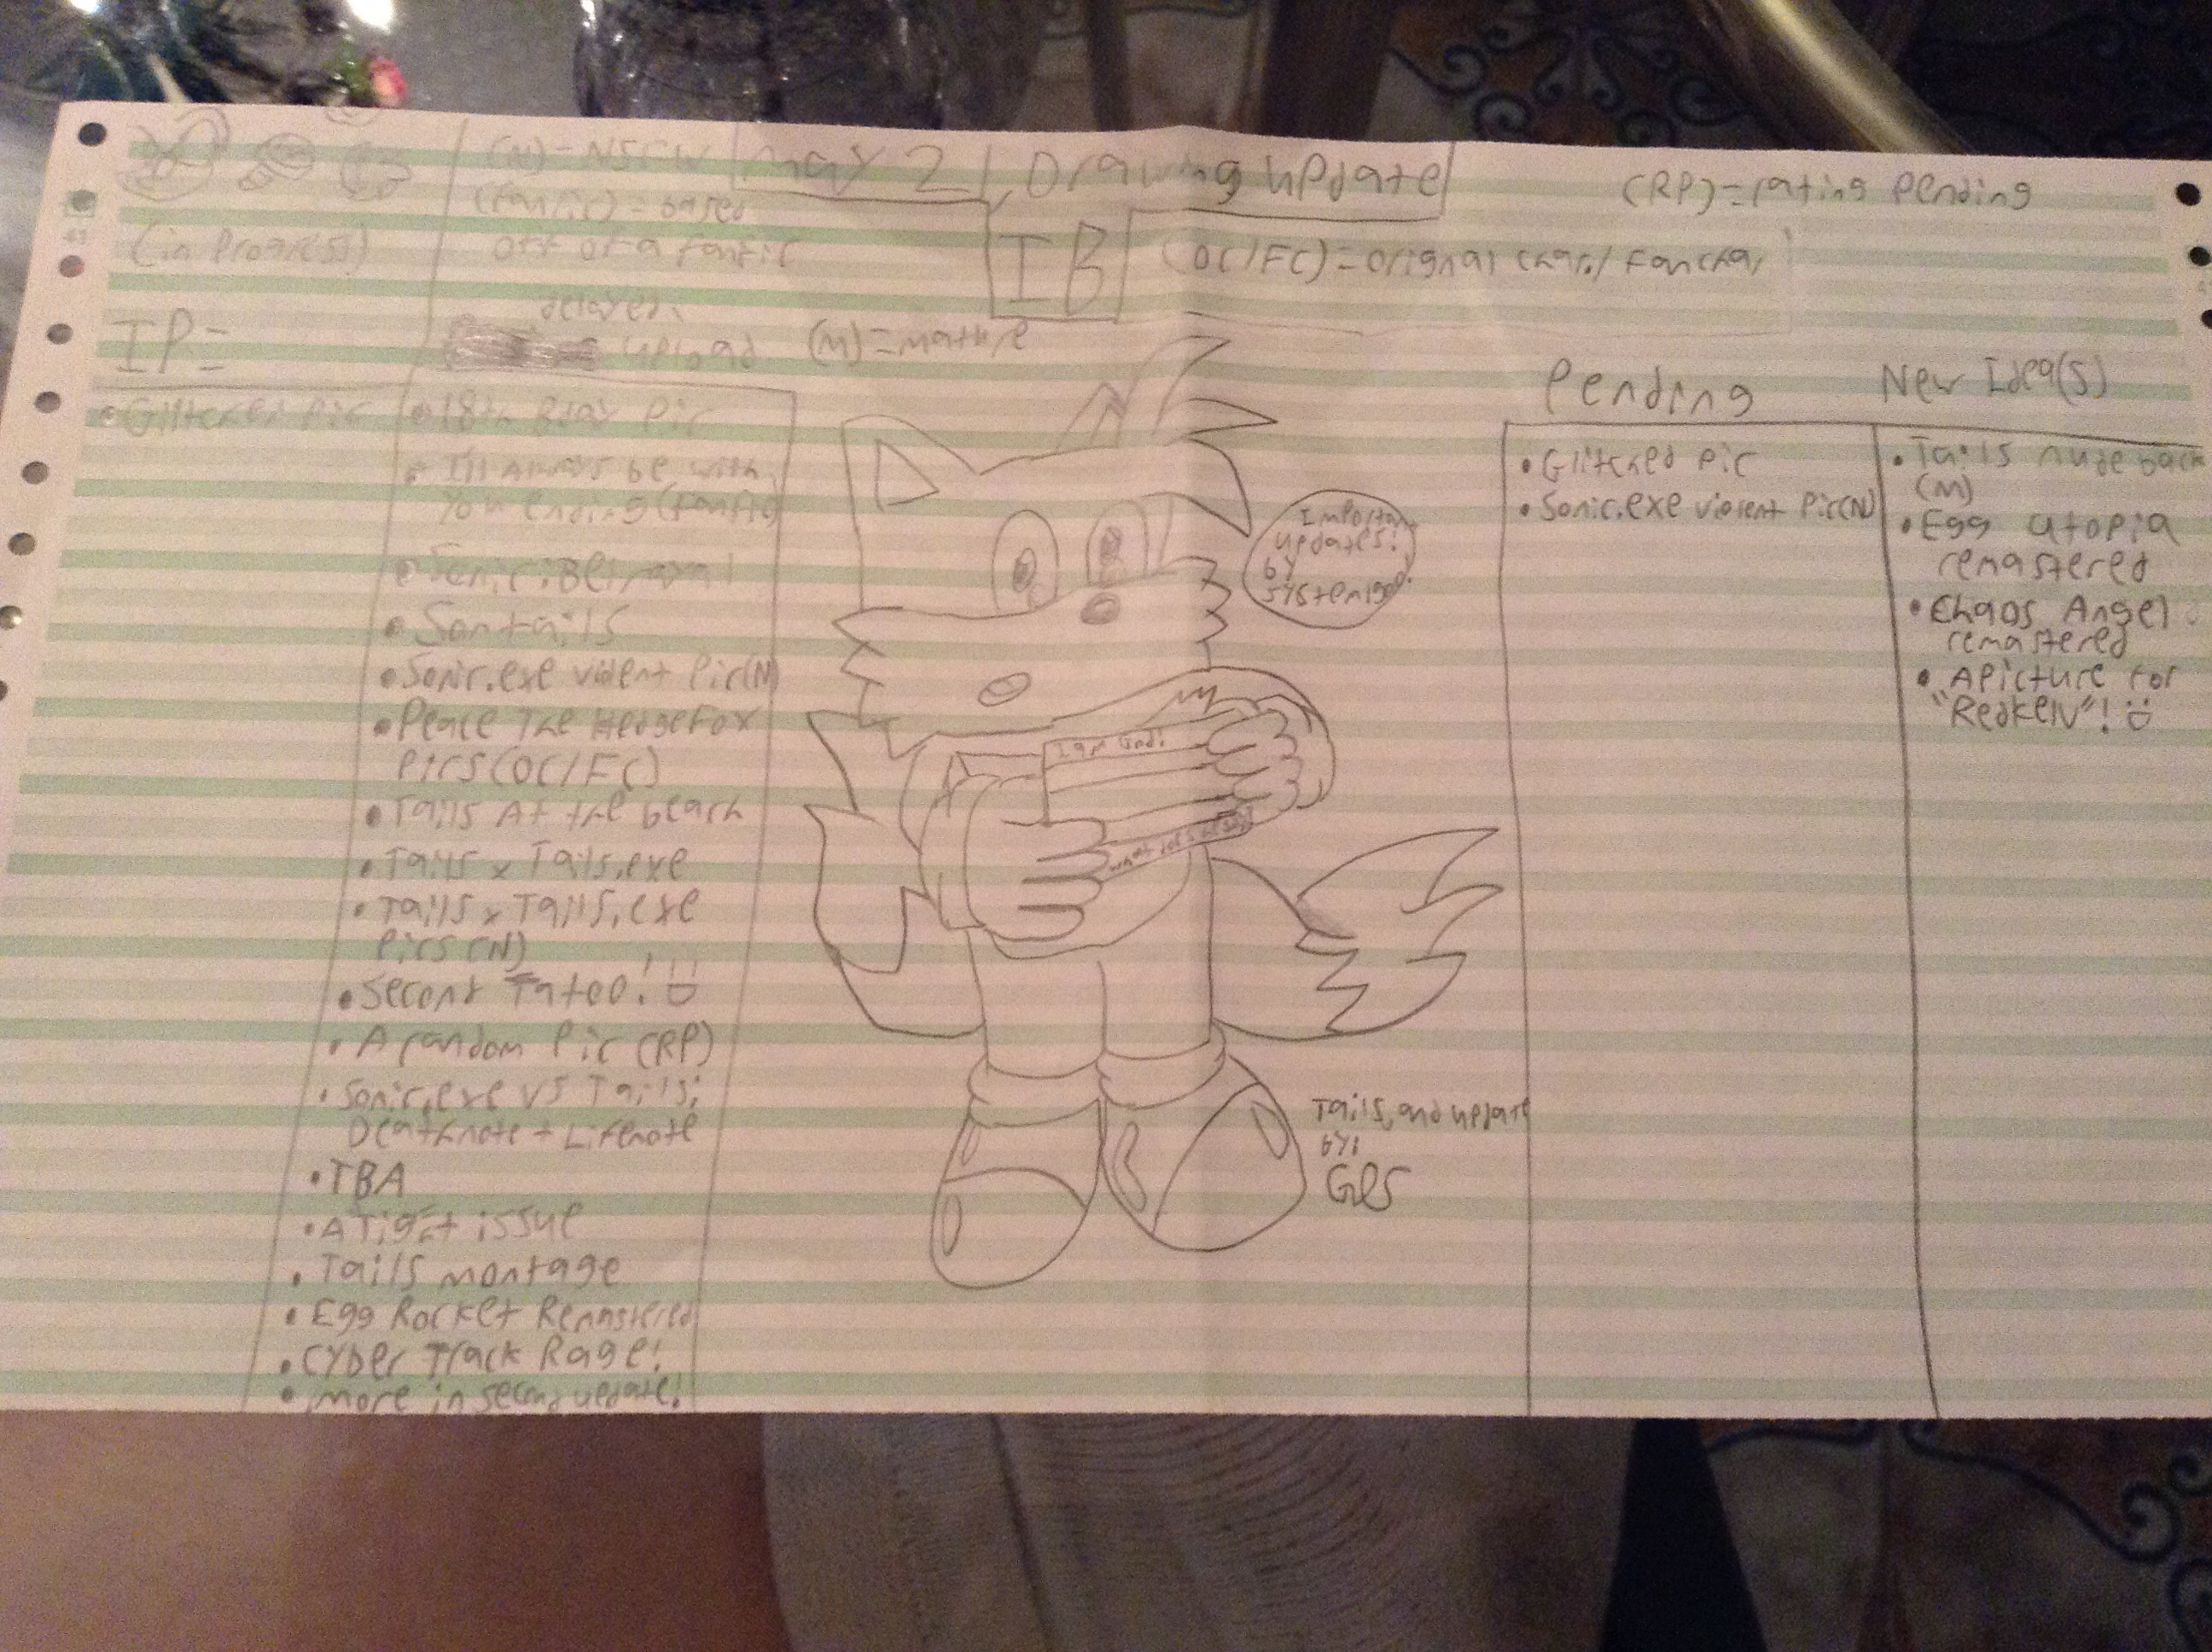 (N)=NSFW
May 2
Drawing update
(RP)=rating Pending
(fanfic)=based
off of a fanfic
(in Progress)
IB
(OC/FC)=orignal char./fanchar
delayed
upload
(M)=mature
IP=
• Glitched Pic
• 18th Bday Pic
• I'll Always be with
you ending (fanfic)
• Sonic: Betrayal
• Sontails
• Sonic.exe violent Pic(N)
• Peace The Hedgefox
Pics(OC/FC)
• Tails At the beach
• Tails x Tails.exe
• Tails x Tails.exe
Pics (N)
• Second Tatoo!
• A random Pic (RP)
• Sonic.exe vs Tails:
Deathnote + Lifenote
• TBA
• A Tight issue
• Tails montage
• Egg Rocket Remastered
• Cyber Track Rage!
• more in second update!
Important
updates!
by
I am God!
Tails, and update
by:
Pending
• Glitched Pic
• Sonic.exe violent Pic(N)
New Idea(s)
• Tails nude back
(M)
• Egg utopia
remastered
• Chaos Angel
remastered
• A Picture for
"RedkelN"!